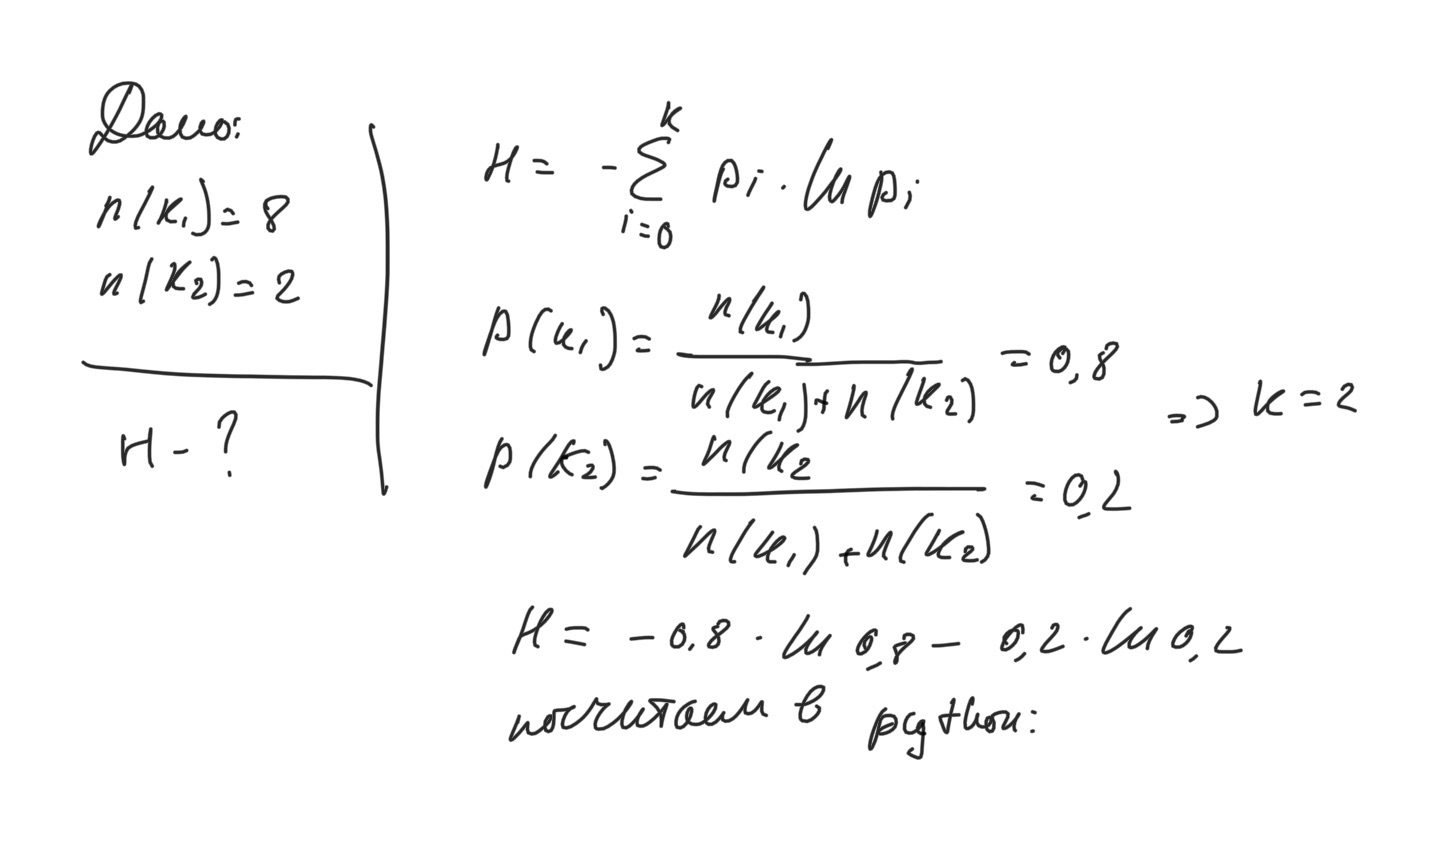 Дано:
n(k₁) = 8
n(k₂) = 2
H - ?
H = - ∑_{i=0}^{k} pi · ln pi
p(k₁) = n(k₁) / n(k₁) + n(k₂) = 0,8
p(k₂) = n(k₂ / n(k₁) + n(k₂) = 0,2
=> k = 2
H = - 0,8 · ln 0,8 - 0,2 · ln 0,2
посчитаем в python: